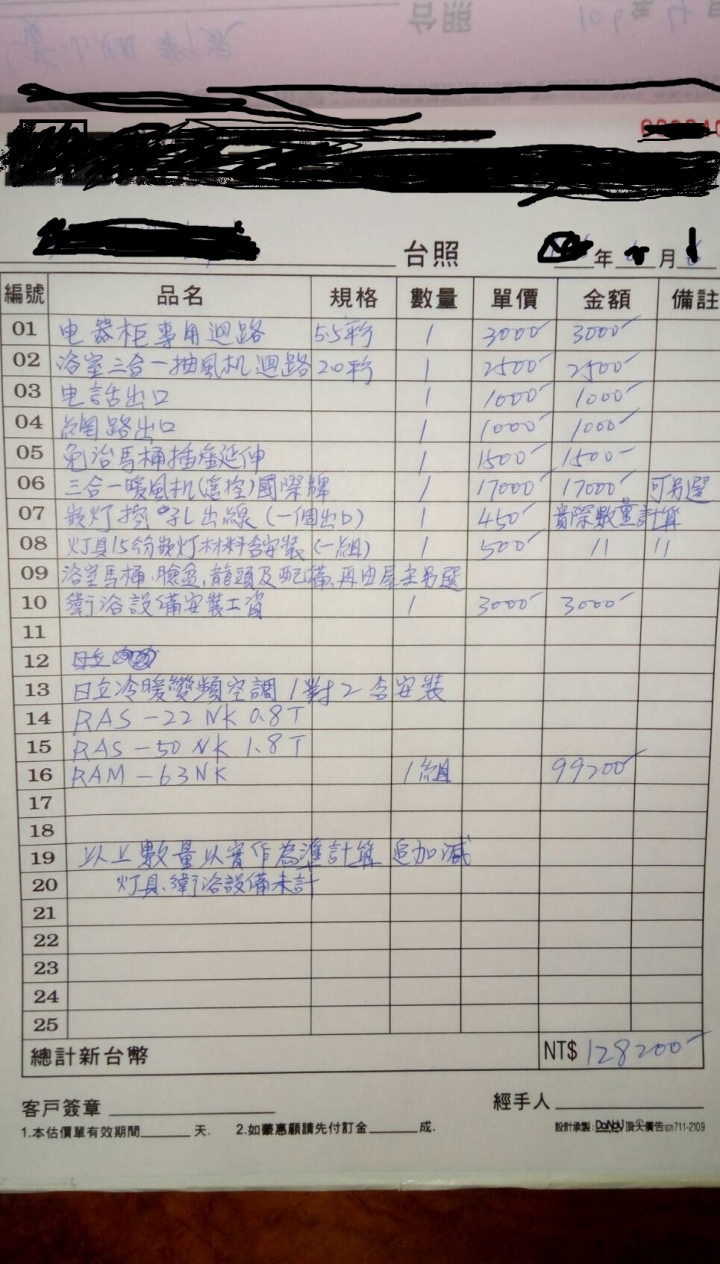 台照
台照 年 月
編號 品名 規格 數量 單價 金額 備註
01 电器柜專用迴路 5.5平方 1 3000 3000
02 浴室三合一抽風机迴路 2.0平方 1 2500 2500
03 电話出口 1 1000 1000
04 网路出口 1 1000 1000
05 免治馬桶插座延伸 1 1500 1500
06 三合一暖風机(遙控)國際牌 1 17000 17000 可另選
07 嵌灯挖孔出線(一個出口) 1 450 實際數量計算
08 灯具15分嵌灯材料含安裝(一組) 1 500 〃 〃
09 浴室馬桶、臉盆,龍頭及配備,再由屋主另選
10 衛浴設備安裝工資 1 3000 3000
11
12 日立
13 日立冷暖變頻空調1對2含安裝
14 RAS-22NK 0.8T
15 RAS-50NK 1.8T
16 RAM-63NK 1組 99200
17
18
19 以上數量以實作為準計算 追加減
20 灯具、衛浴設備未計
21
22
23
24
25
總計新台幣 NT$ 128200
客戶簽章 經手人
1.本估價單有效期間 天. 2.如蒙惠顧請先付訂金 成. 設計承製: 頂尖廣告 711-2109